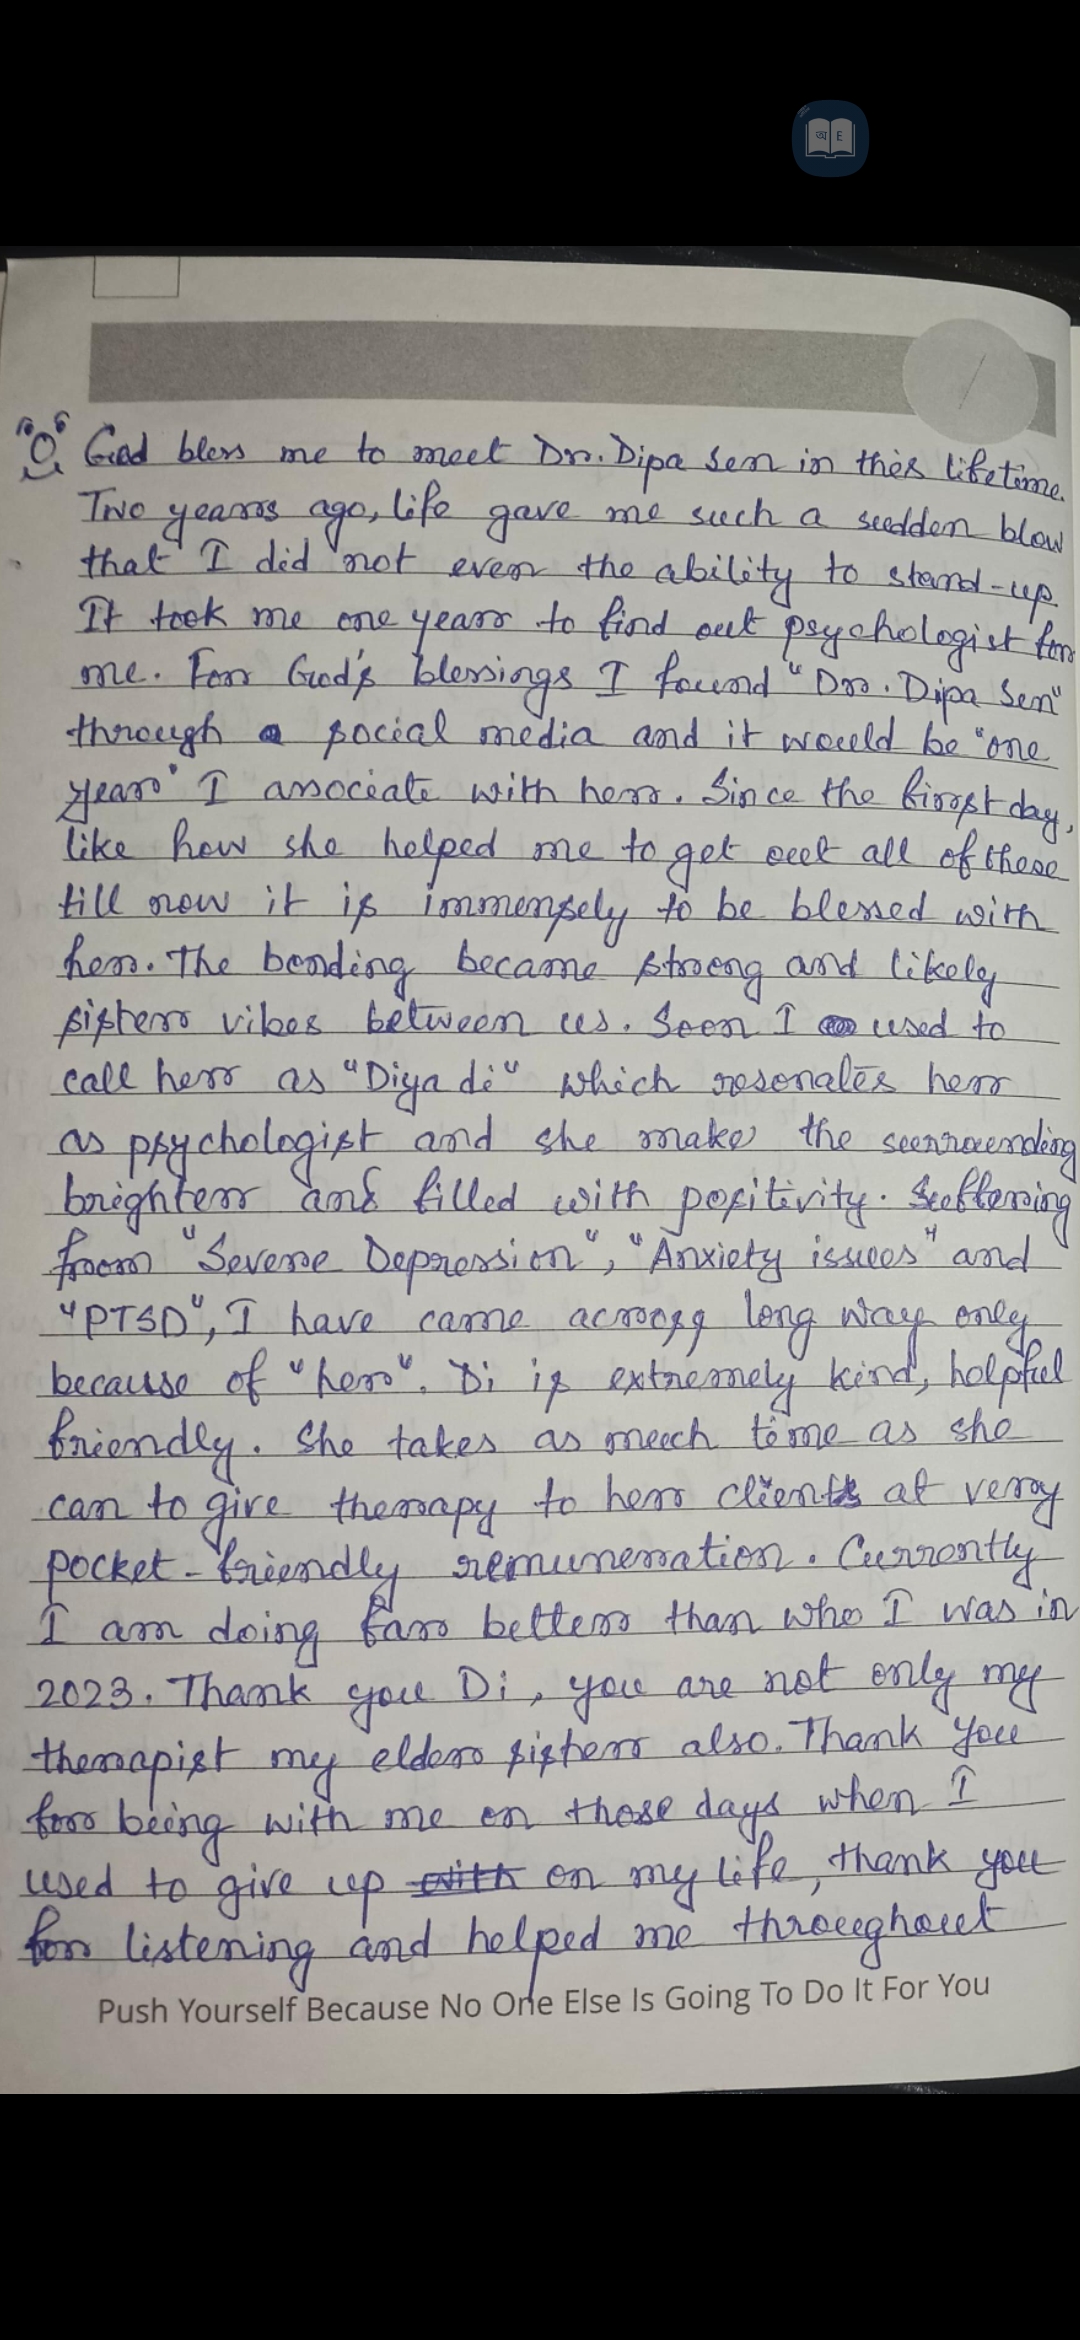 অ E
God bless me to meet Dr. Dipa Sen in this lifetime.
Two years ago, life gave me such a sudden blow
that I did not even the ability to stand-up.
It took me one year to find out psychologist for
me. For God's blessings I found "Dr. Dipa Sen"
through social media and it would be "one
year" I associate with her. Since the first day,
like how she helped me to get out all of these
till now it is immensely to be blessed with
her. The bonding became strong and likely
sister vibes between us. Soon I used to
call her as "Diya di" which resonates her
as psychologist and she make the surrounding
brighter and filled with positivity. Suffering
from "Severe Depression", "Anxiety issues" and
"PTSD", I have came across long way only
because of "her". Di is extremely kind, helpful
friendly. She takes as much time as she
can to give therapy to her clients at very
pocket-friendly remuneration. Currently
I am doing far better than who I was in
2023. Thank you Di, you are not only my
therapist my elder sister also. Thank you
for being with me on those days when I
used to give up with on my life, thank you
for listening and helped me throughout
Push Yourself Because No One Else Is Going To Do It For You